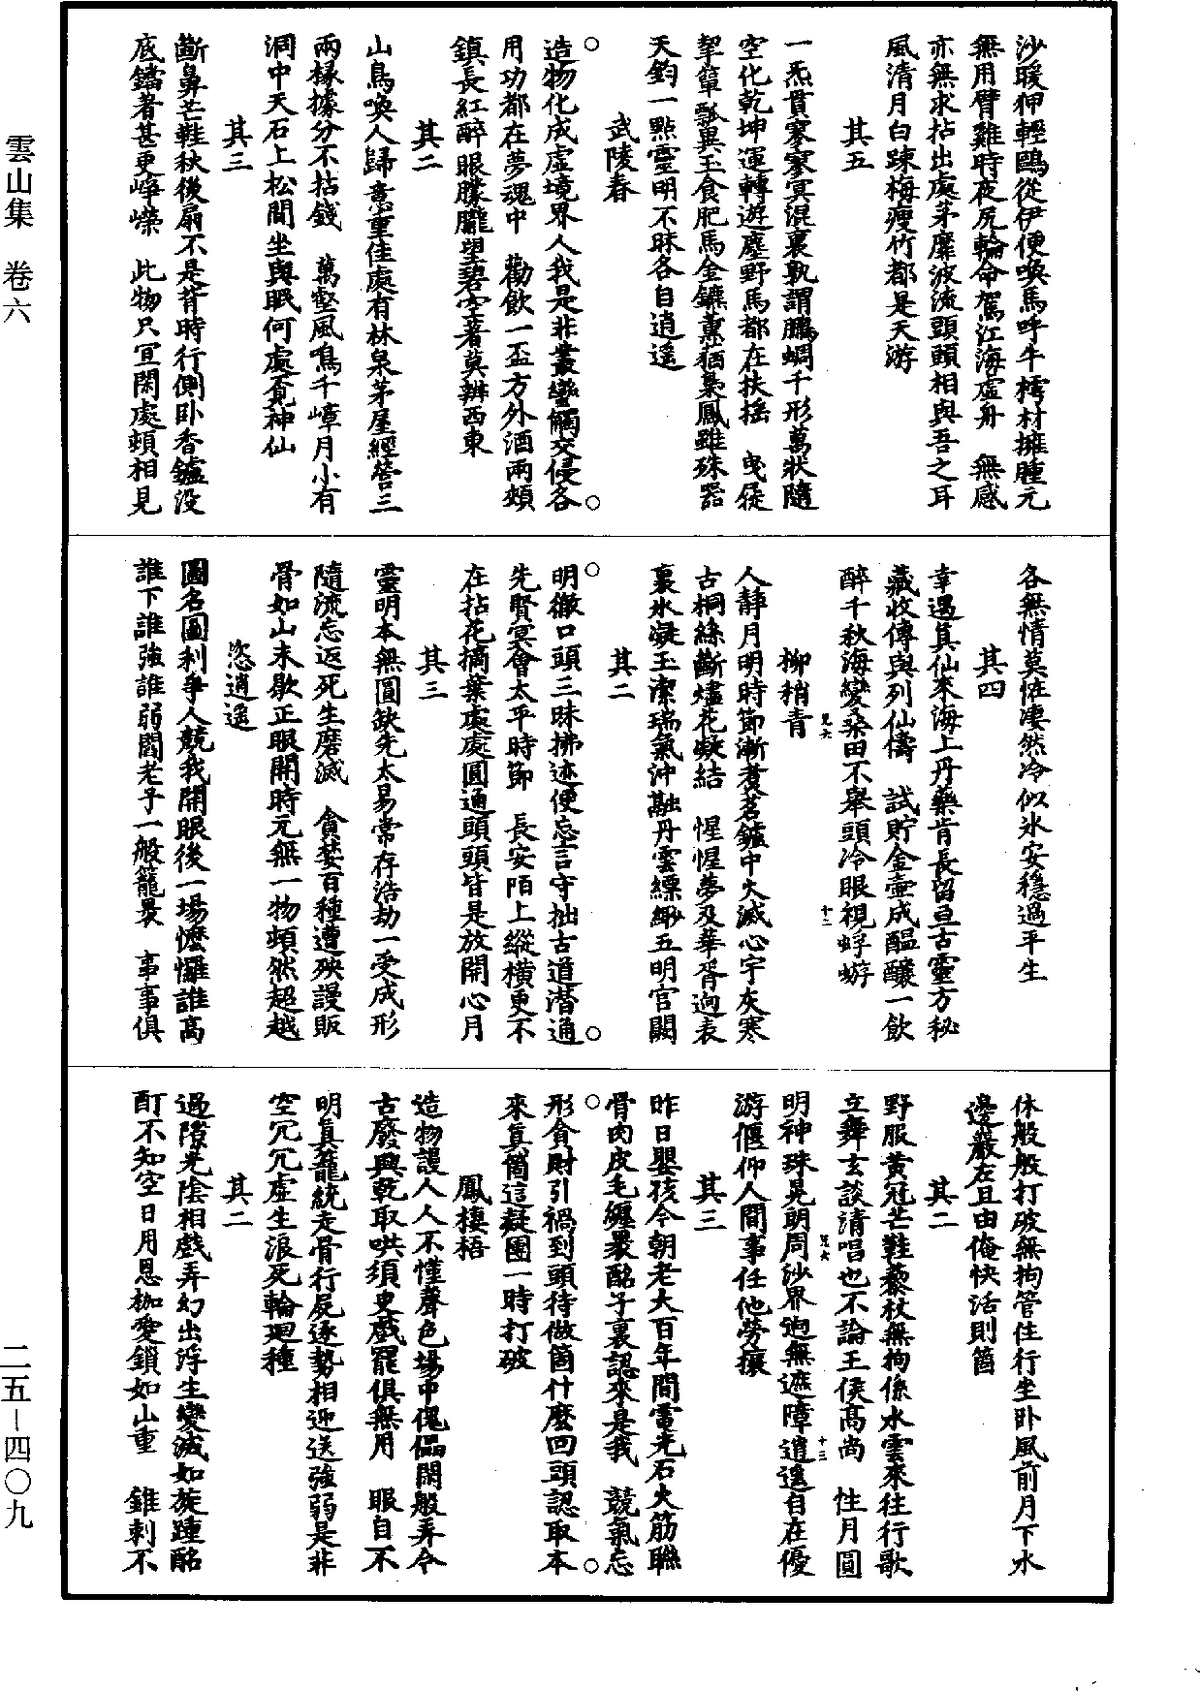 沙暖狎輕鷗從伊便喚馬呼牛樗材擁腫元
無用臂雞時夜尻輪命駕江海虛舟　無感
亦無求拈出處茅靡波流頭頭相與吾之耳
風清月白踈梅瘦竹都是天游
其五
一炁貫寥寥冥混裏孰謂鵬蜩千形萬狀隨
空化乾坤運轉遊塵野馬都在扶搖　曳屣
挈簞瓢異玉食肥馬金鑣薰蕕梟鳳雖殊器
天鈞一點靈明不昧各自逍遥
武陵春
造物化成虛境界人我是非叢蠻觸交侵各
用功都在夢魂中　勸飲一盃方外酒兩頰
鎮長紅醉眼朦朧望碧空著莫辨西東
其二
山鳥喚人歸意重佳處有林泉茅屋經營三
兩椽據分不拈錢　萬壑風鳴千嶂月小有
洞中天石上松間坐與眠何處覓神仙
其三
斷鼻芒鞋秋後扇不是背時行側卧香爐没
底鐺著甚更崢嶸　此物只宜閑處頓相見
各無情莫怪淒然冷似氷安穩過平生
其四
幸遇真仙來海上丹藥肯長留亘古靈方秘
藏收傳與列仙儔　試貯金壺成醖釀一飲
醉千秋海變桑田不舉頭冷眼視蜉蝣
柳梢青
人靜月明時節漸煑茗鑪中火滅心宇灰寒
古桐絲斷燼花凝結　惺惺夢及華胥逈表
裏氷凝玉潔瑞氣沖融丹雲縹緲五明宮闕
其二
明徹口頭三昧拂迹便忘言守拙古道潛通
先賢冥會太平時節　長安陌上縱横更不
在拈花摘葉處處圓通頭頭皆是放開心月
其三
靈明本無圓缺先太易常存浩劫一受成形
隨流忘返死生磨滅　貪婪百種遭殃謾販
骨如山未歇正眼開時元無一物頓然超越
恣逍遥
圖名圖利爭人競我開眼後一場㦬㦬誰高
誰下誰強誰弱閻老子一般籠罩　事事俱
休般般打破無拘管住行坐卧風前月下水
邊巖左且由俺快活則箇
其二
野服黄冠芒鞋藜杖無拘係水雲來往行歌
立舞玄談清唱也不論王侯高尚　性月圓
明神珠晃朗周沙界迥無遮障逍遥自在優
游偃仰人間事任他勞攘
其三
昨日嬰孩今朝老大百年間電光石火筋聯
骨肉皮毛纏裹酩子裏認來是我　競氣忘
形貪財引禍到頭待做箇什麽回頭認取本
來真箇這凝團一時打破
鳳棲梧
造物謾人人不懂聲色場中傀儡閑般弄今
古廢興乾取哄須臾戲罷俱無用　眼自不
明真籠統走骨行屍逐勢相迎送強弱是非
空冗冗虛生浪死輪迴種
其二
過隙光陰相戲弄幻出浮生變滅如旋踵酩
酊不知空日用恩枷愛鎖如山重　錐刺不
雲山集　卷六
二五－四〇九